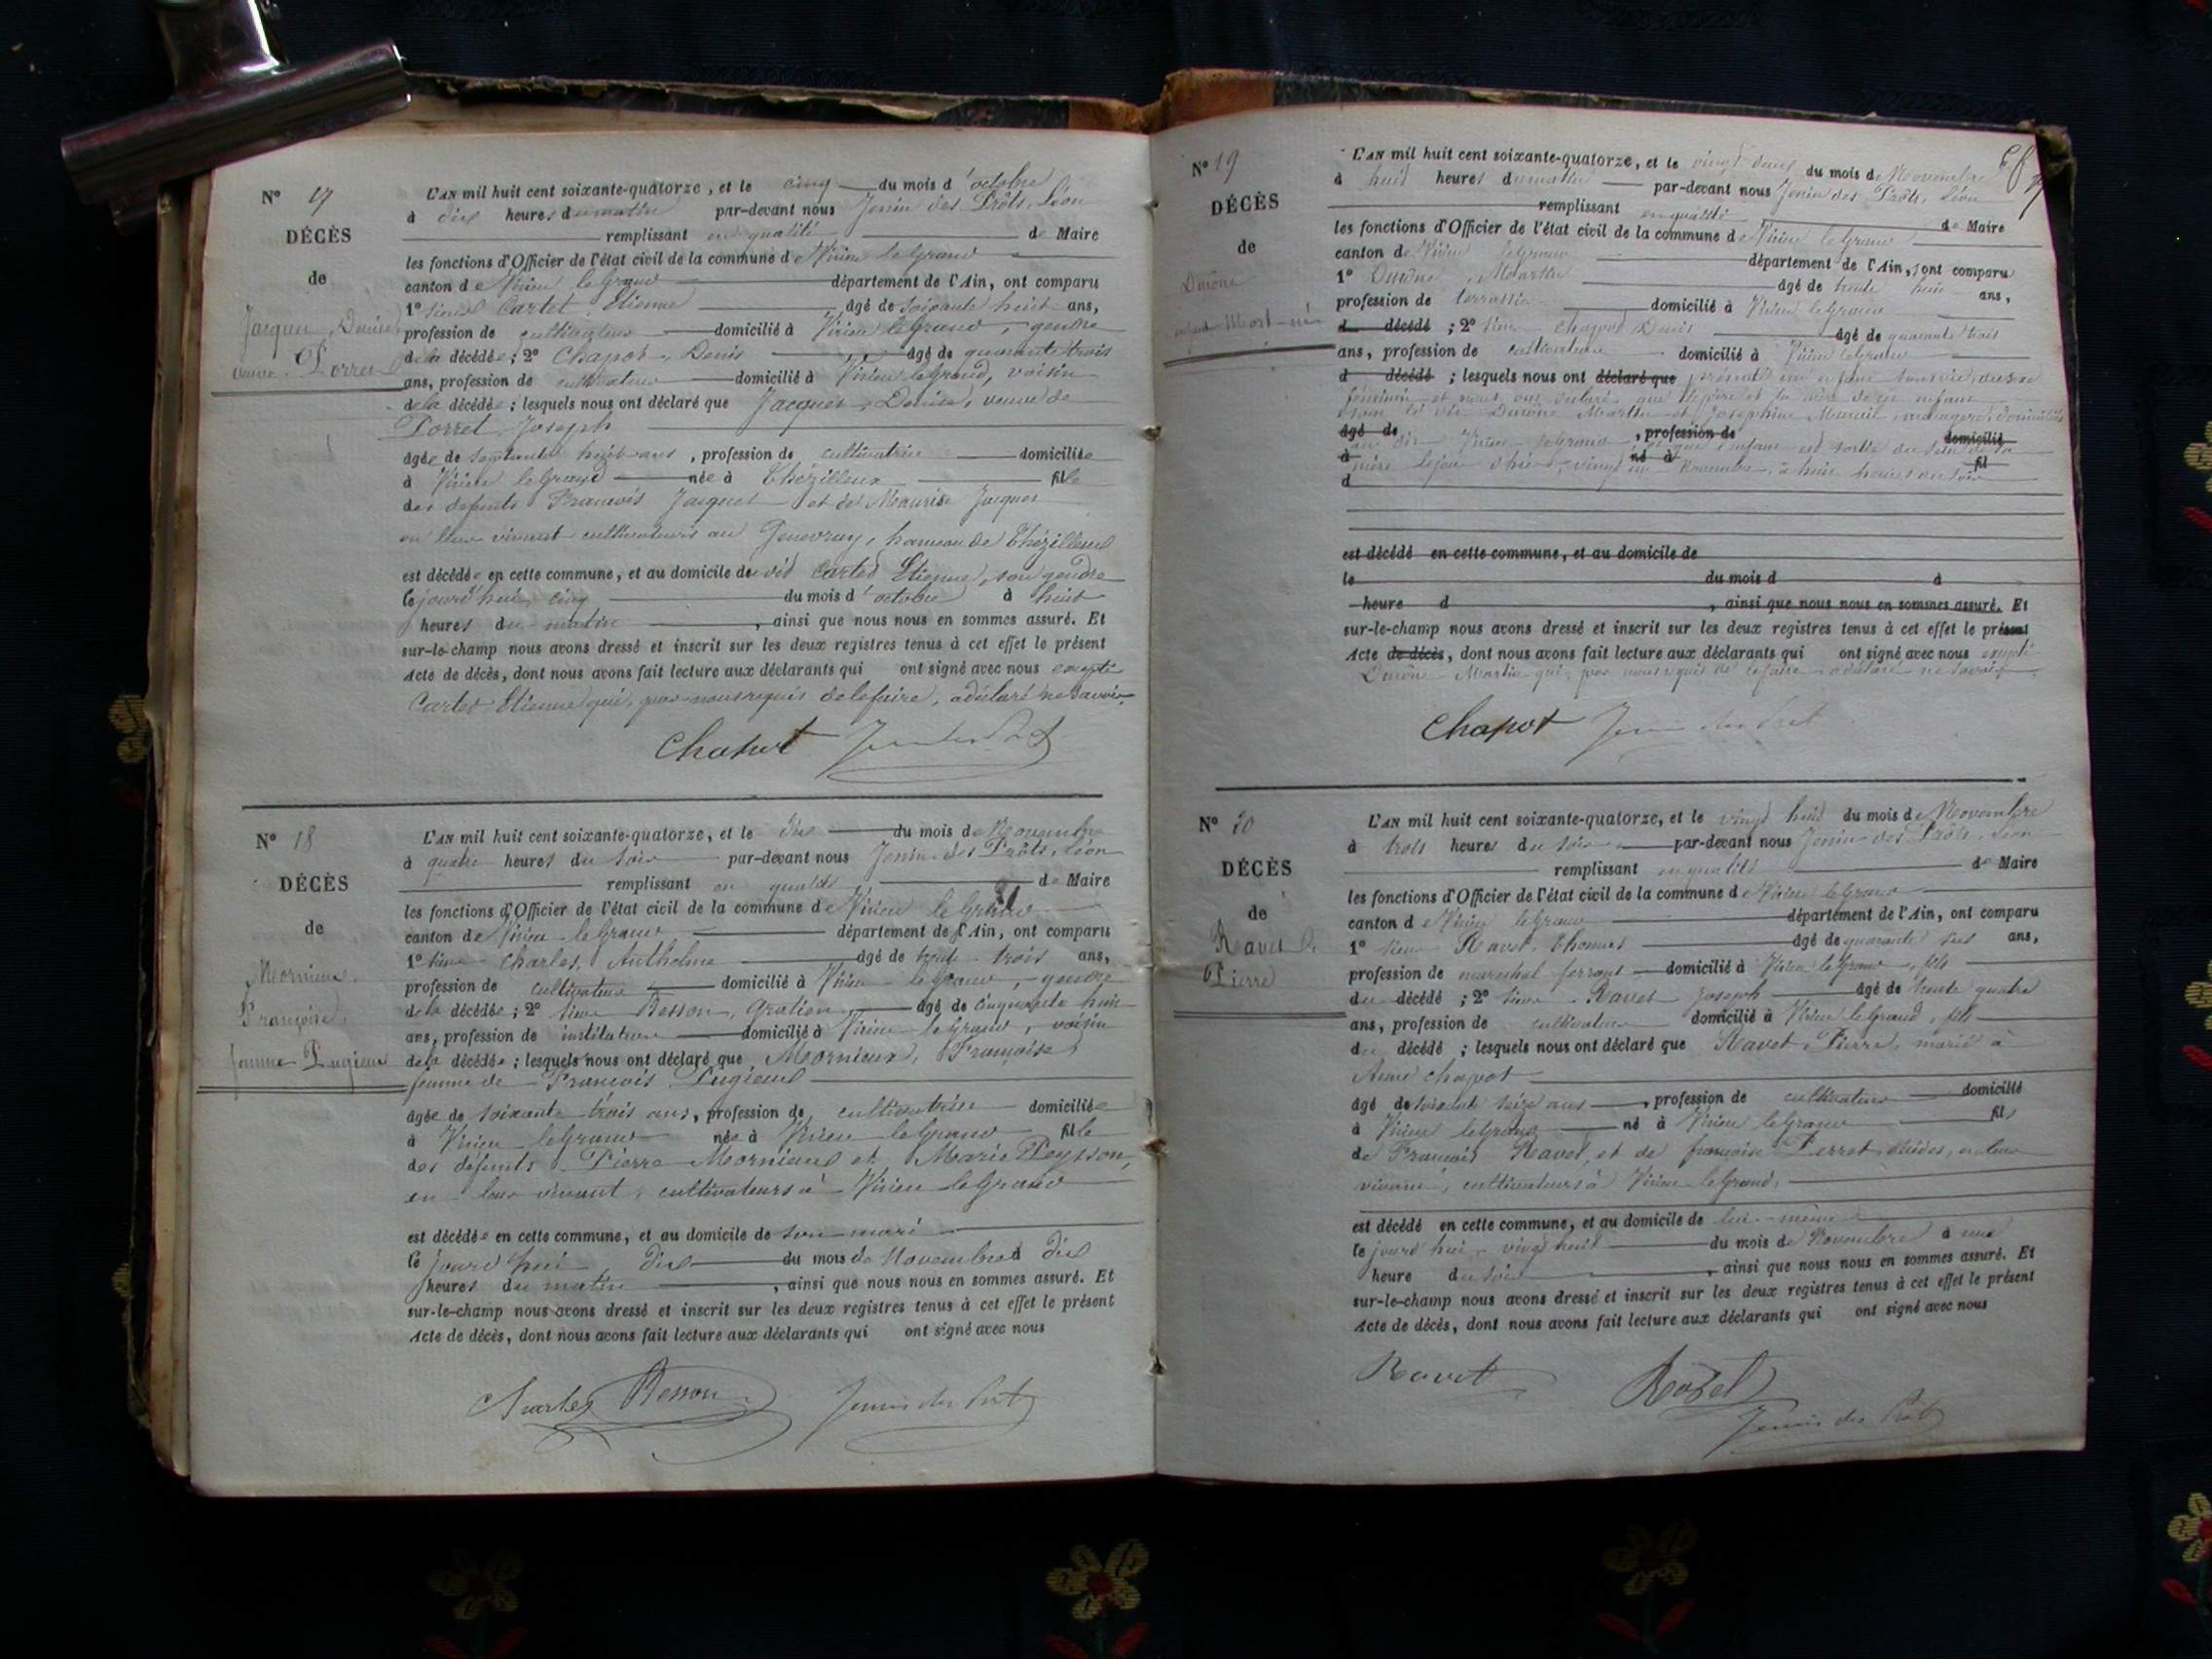 N° 17
DÉCÈS
de
Jacquet, Denise,
veuve Porret
L'AN mil huit cent soixante-quatorze, et le cinq du mois d'octobre
à dix heures du matin par-devant nous Jenin des Prôts, Léon
remplissant en qualité de Maire
les fonctions d'Officier de l'état civil de la commune de Virieu le Grand
canton de Virieu le Grand département de l'Ain, ont comparu
1° sieur Cartet, Etienne âgé de soixante huit ans,
profession de cultivateur domicilié à Virieu le Grand, gendre
de la décédée; 2° Chapot, Denis âgé de quarante trois
ans, profession de cultivateur domicilié à Virieu le Grand, voisin
de la décédée; lesquels nous ont déclaré que Jacquet, Denise, veuve de
Porret, Joseph
âgée de septante huit ans, profession de cultivatrice domiciliée
à Virieu le Grand née à Thézillieux fille
des défunts François Jacquet et de Maurise Jacquet
en leur vivant cultivateurs au Genevray, hameau de Thézillieux
est décédée en cette commune, et au domicile du dit Cartet Etienne, son gendre
le jourd'hui, cinq du mois d'octobre à huit
heures du matin, ainsi que nous nous en sommes assuré. Et
sur-le-champ nous avons dressé et inscrit sur les deux registres tenus à cet effet le présent
Acte de décès, dont nous avons fait lecture aux déclarants qui ont signé avec nous excepté
Cartet Etienne qui, par nous requis de le faire, a déclaré ne savoir.
Chapot Jenin des Prôts
N° 18
DÉCÈS
de
Mornieux,
Françoise,
femme Pugieux
L'AN mil huit cent soixante-quatorze, et le dix du mois de Novembre
à quatre heures du soir par-devant nous Jenin des Prôts, Léon
remplissant en qualité de Maire
les fonctions d'Officier de l'état civil de la commune de Virieu le Grand
canton de Virieu le Grand département de l'Ain, ont comparu
1° sieur Charles, Anthelme âgé de trente trois ans,
profession de cultivateur domicilié à Virieu le Grand, gendre
de la décédée; 2° sieur Besson, Gratien âgé de cinquante huit
ans, profession de instituteur domicilié à Virieu le Grand, voisin
de la décédée; lesquels nous ont déclaré que Mornieux, Françoise,
femme de François Pugieux
âgée de soixante trois ans, profession de cultivatrice domiciliée
à Virieu le Grand née à Virieu le Grand fille
des défunts Pierre Mornieux et Marie Peysson,
en leur vivant, cultivateurs à Virieu le Grand
est décédée en cette commune, et au domicile de son mari
le jourd'hui dix du mois de Novembre à dix
heures du matin, ainsi que nous nous en sommes assuré. Et
sur-le-champ nous avons dressé et inscrit sur les deux registres tenus à cet effet le présent
Acte de décès, dont nous avons fait lecture aux déclarants qui ont signé avec nous
Charles Besson Jenin des Prôts
N° 19
DÉCÈS
de
Dumône
enfant Mort-né
L'AN mil huit cent soixante-quatorze, et le vingt deux du mois de Novembre
à huit heures du matin par-devant nous Jenin des Prôts, Léon
remplissant en qualité de Maire
les fonctions d'Officier de l'état civil de la commune de Virieu le Grand
canton de Virieu le Grand département de l'Ain, sont comparu
1° Dumône, Martin âgé de trente huit ans,
profession de terrassier domicilié à Virieu le Grand
d décédé; 2° sieur Chapot Denis âgé de quarante trois
ans, profession de cultivateur domicilié à Virieu le Grand
d décédé; lesquels nous ont déclaré que présenté un enfant sans vie, du sexe
féminin et nous ont déclaré que le père et la mère de cet enfant
sont les dits Dumône Martin et Joséphine ménagère, domiciliés
âgé de, profession de domicilié
au dit Virieu le Grand, et que l'enfant est sortie du sein de sa
à né à fil
mère le jour d'hier, vingt un Novembre, à huit heures du soir
d
est décédé en cette commune, et au domicile de
le du mois d à
heure d, ainsi que nous nous en sommes assuré. Et
sur-le-champ nous avons dressé et inscrit sur les deux registres tenus à cet effet le présent
Acte de décès, dont nous avons fait lecture aux déclarants qui ont signé avec nous excepté
Dumône Martin qui, par nous requis de le faire a déclaré ne savoir.
Chapot Jenin des Prôts
N° 20
DÉCÈS
de
Ravet
Pierre
L'AN mil huit cent soixante-quatorze, et le vingt huit du mois de Novembre
à trois heures du soir par-devant nous Jenin des Prôts, Léon
remplissant en qualité de Maire
les fonctions d'Officier de l'état civil de la commune de Virieu le Grand
canton de Virieu le Grand département de l'Ain, ont comparu
1° sieur Ravet, Thomas âgé de quarante six ans,
profession de maréchal ferrant domicilié à Virieu le Grand, fils
du décédé; 2° sieur Ravet Joseph âgé de trente quatre
ans, profession de cultivateur domicilié à Virieu le Grand, fils
du décédé; lesquels nous ont déclaré que Ravet, Pierre, marié à
Anne Chapot
âgé de soixante seize ans, profession de cultivateur domicilié
à Virieu le Grand né à Virieu le Grand fils
de François Ravet, et de françoise Perret, décédés, en leur
vivant, cultivateurs à Virieu le Grand,
est décédé en cette commune, et au domicile de lui-même
le jourd'hui, vingt huit du mois de Novembre à une
heure du soir, ainsi que nous nous en sommes assuré. Et
sur-le-champ nous avons dressé et inscrit sur les deux registres tenus à cet effet le présent
Acte de décès, dont nous avons fait lecture aux déclarants qui ont signé avec nous
Ravet Ravet
Jenin des Prôts